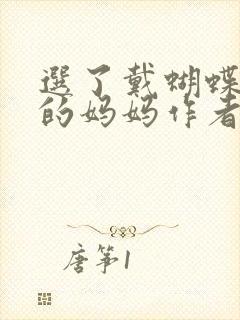 選了戴蝴蝶
的妈妈作者
唐筝1